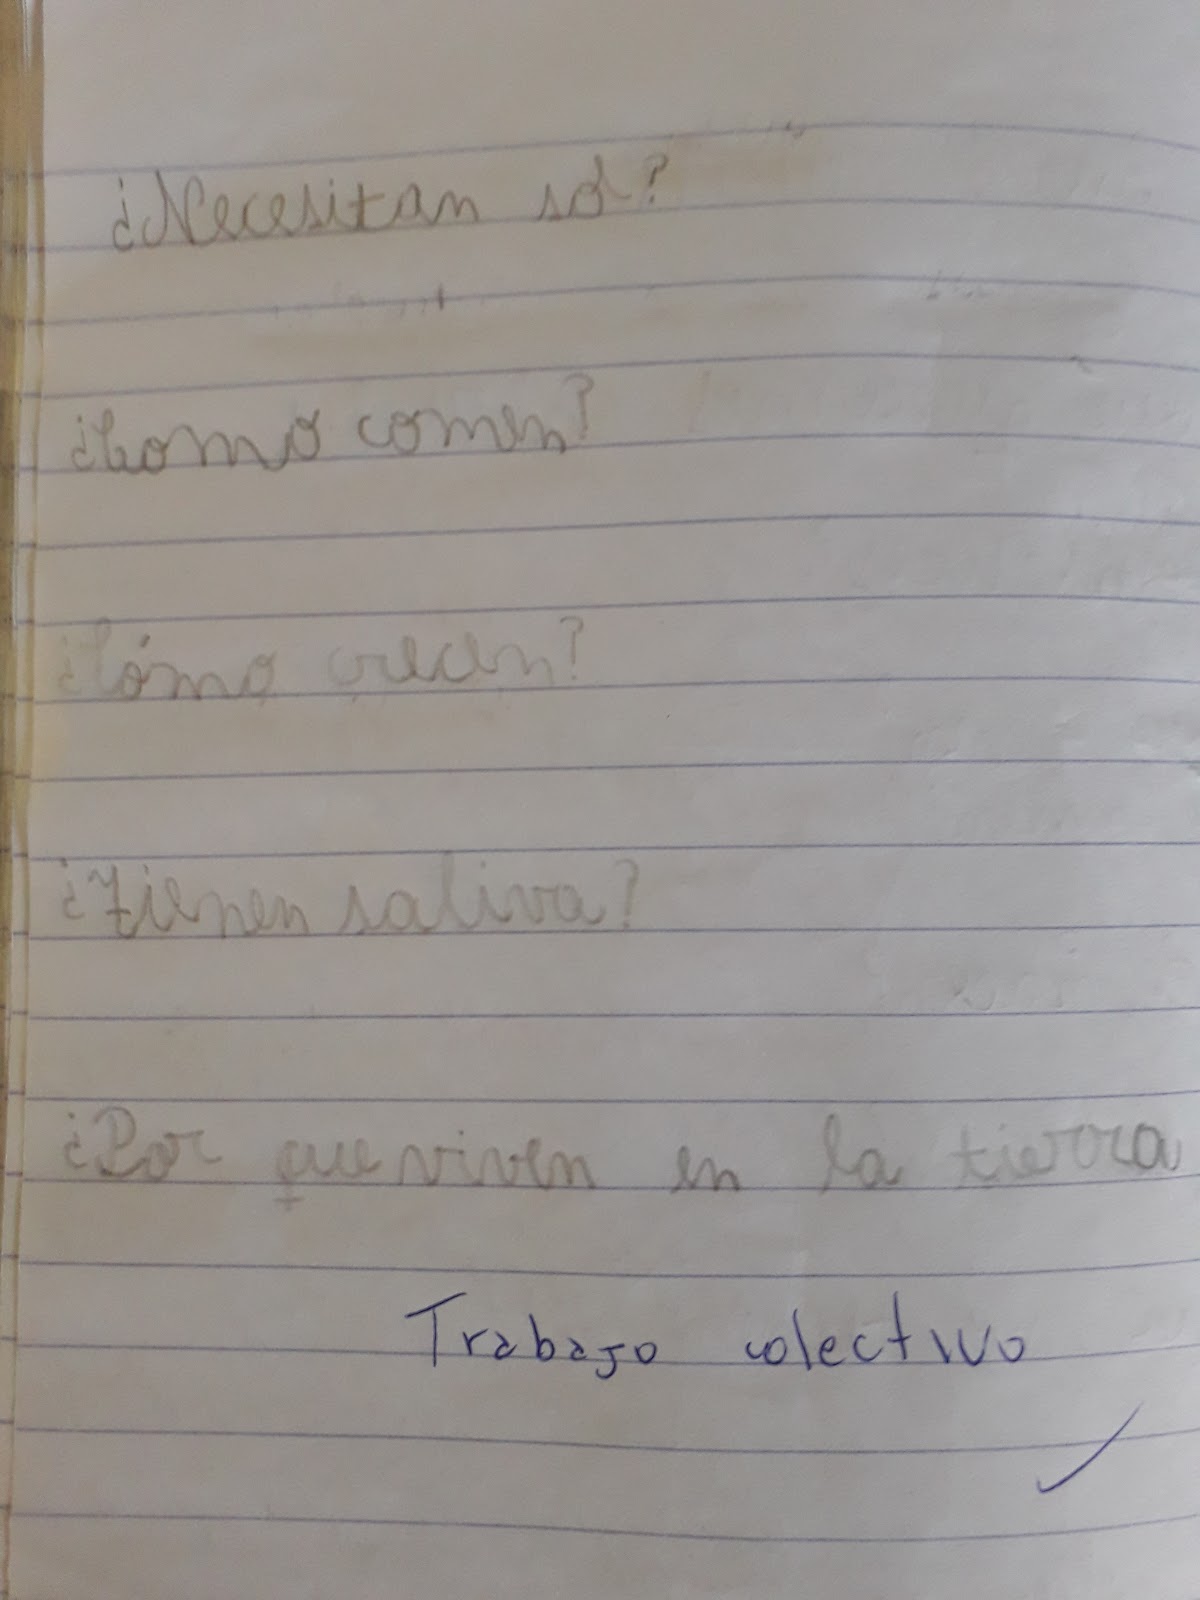 ¿Necesitan sol?
¿Como comen?
¿Cómo crecen?
¿Tienen saliva?
¿Por que viven en la tierra
Trabajo colectivo